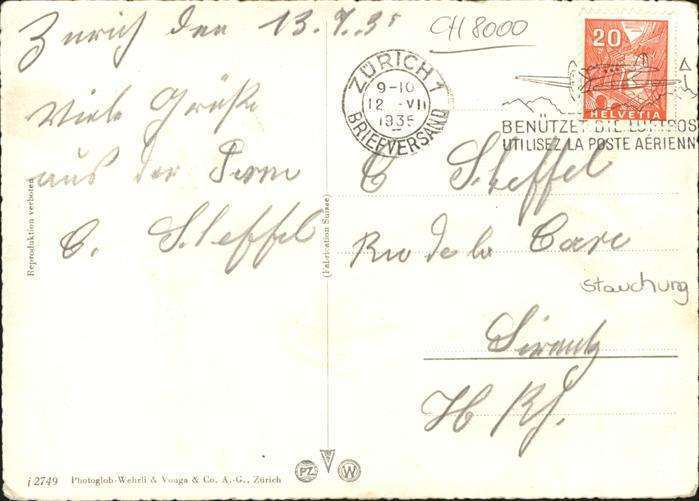 Zurich den 13.7.35
CH 8000
ZÜRICH 1
9-10
12.-VII
1935
BRIEFVERSAND
20
HELVETIA
BENÜTZET DIE LUFTPOS
UTILISEZ LA POSTE AÉRIENN
Viele Grüße
aus der Fern
C. Steffel
C Steffel
Rue de la Care
Stauchung
Sirentz
H Rh.
Reproduktion verboten
(Fabrication Suisse)
i 2749 Photoglob-Wehrli & Vouga & Co. A.-G., Zürich
PZ
W